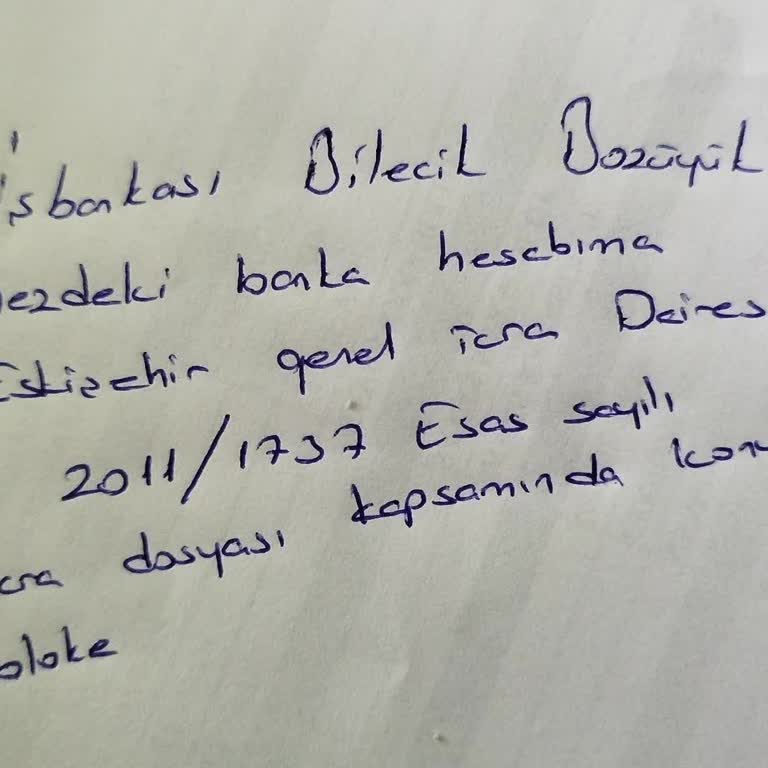 İşbankası Bilecik Bozüyük
ezdeki banka hesabıma
Eskişehir genel icra Daires
2011/1737 Esas sayılı
cra dosyası kapsamında kon
bloke